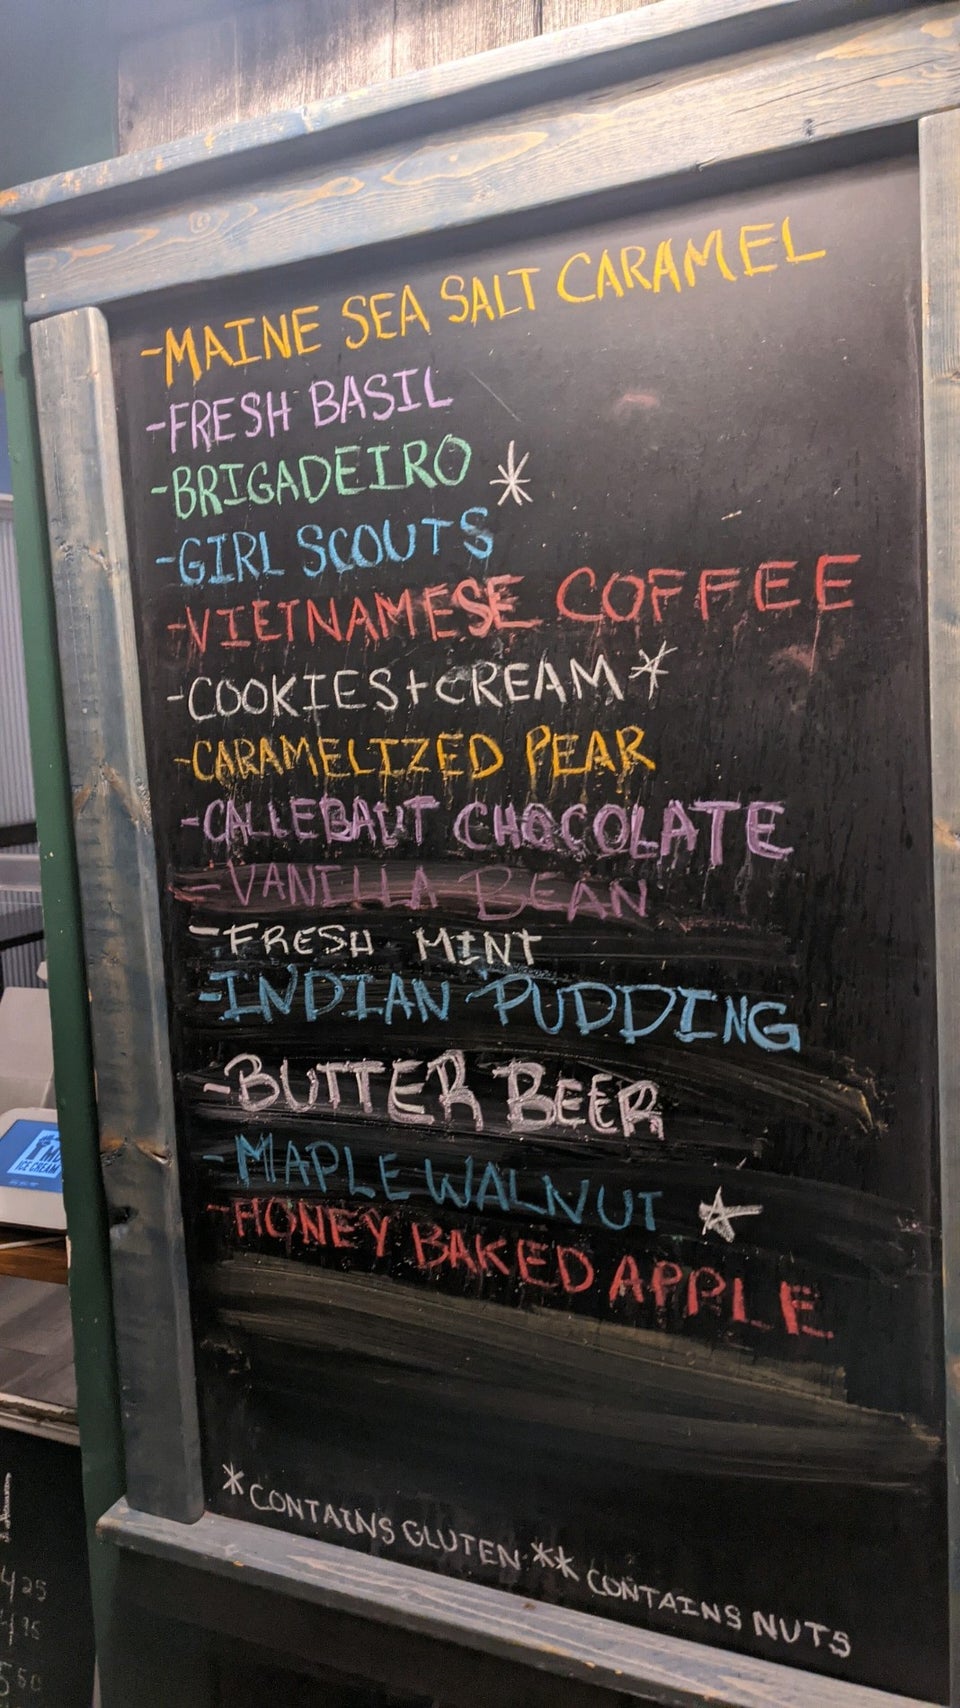 -MAINE SEA SALT CARAMEL
-FRESH BASIL
-BRIGADEIRO *
-GIRL SCOUTS
-VIETNAMESE COFFEE
-COOKIES+CREAM*
-CARAMELIZED PEAR
-CALLEBAUT CHOCOLATE
-VANILLA BEAN
-FRESH MINT
-INDIAN PUDDING
-BUTTER BEER
-MAPLE WALNUT *
-HONEY BAKED APPLE
*CONTAINS GLUTEN ** CONTAINS NUTS
ICE CREAM
4.25
4.95
5.50